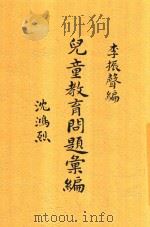 李振聲編
兒童教育問題彙編
沈鴻烈
www.duxiu.com